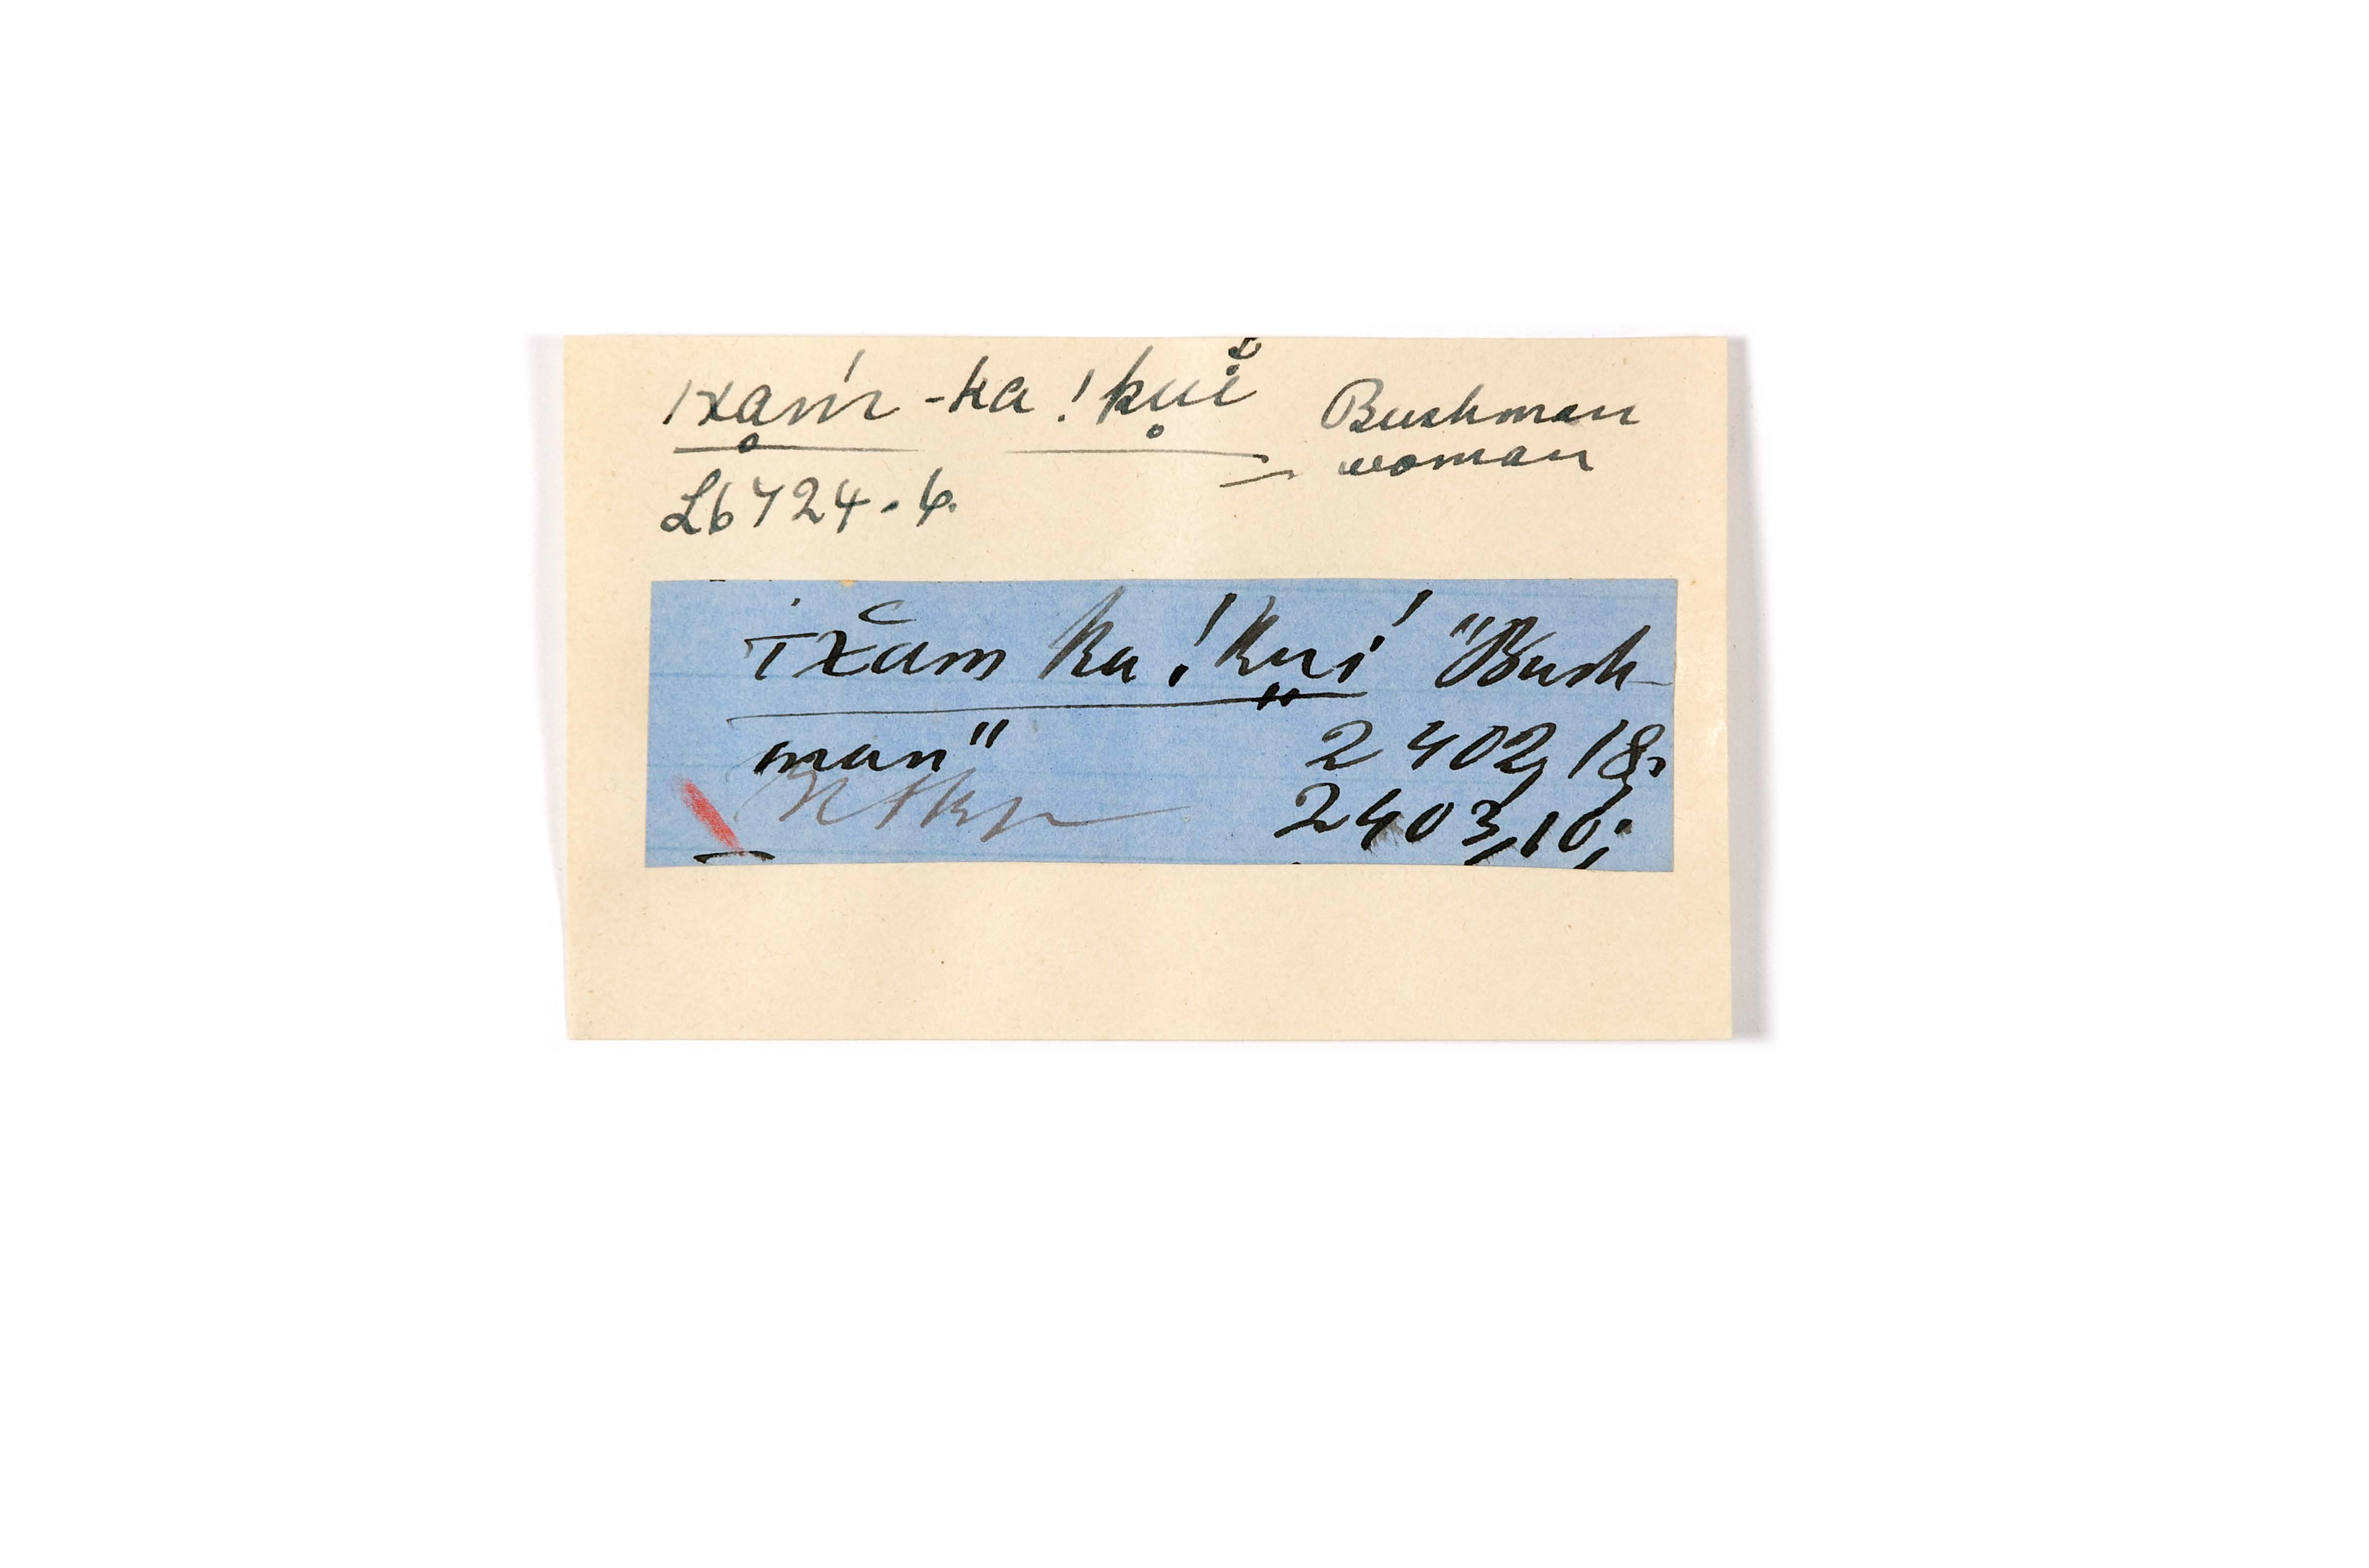 |xạḿ -ka !kụi̊ Bushman
woman
L6724.6.
|x̆am ka !kui' "Bush-
man" 2402,18;
2403,10;